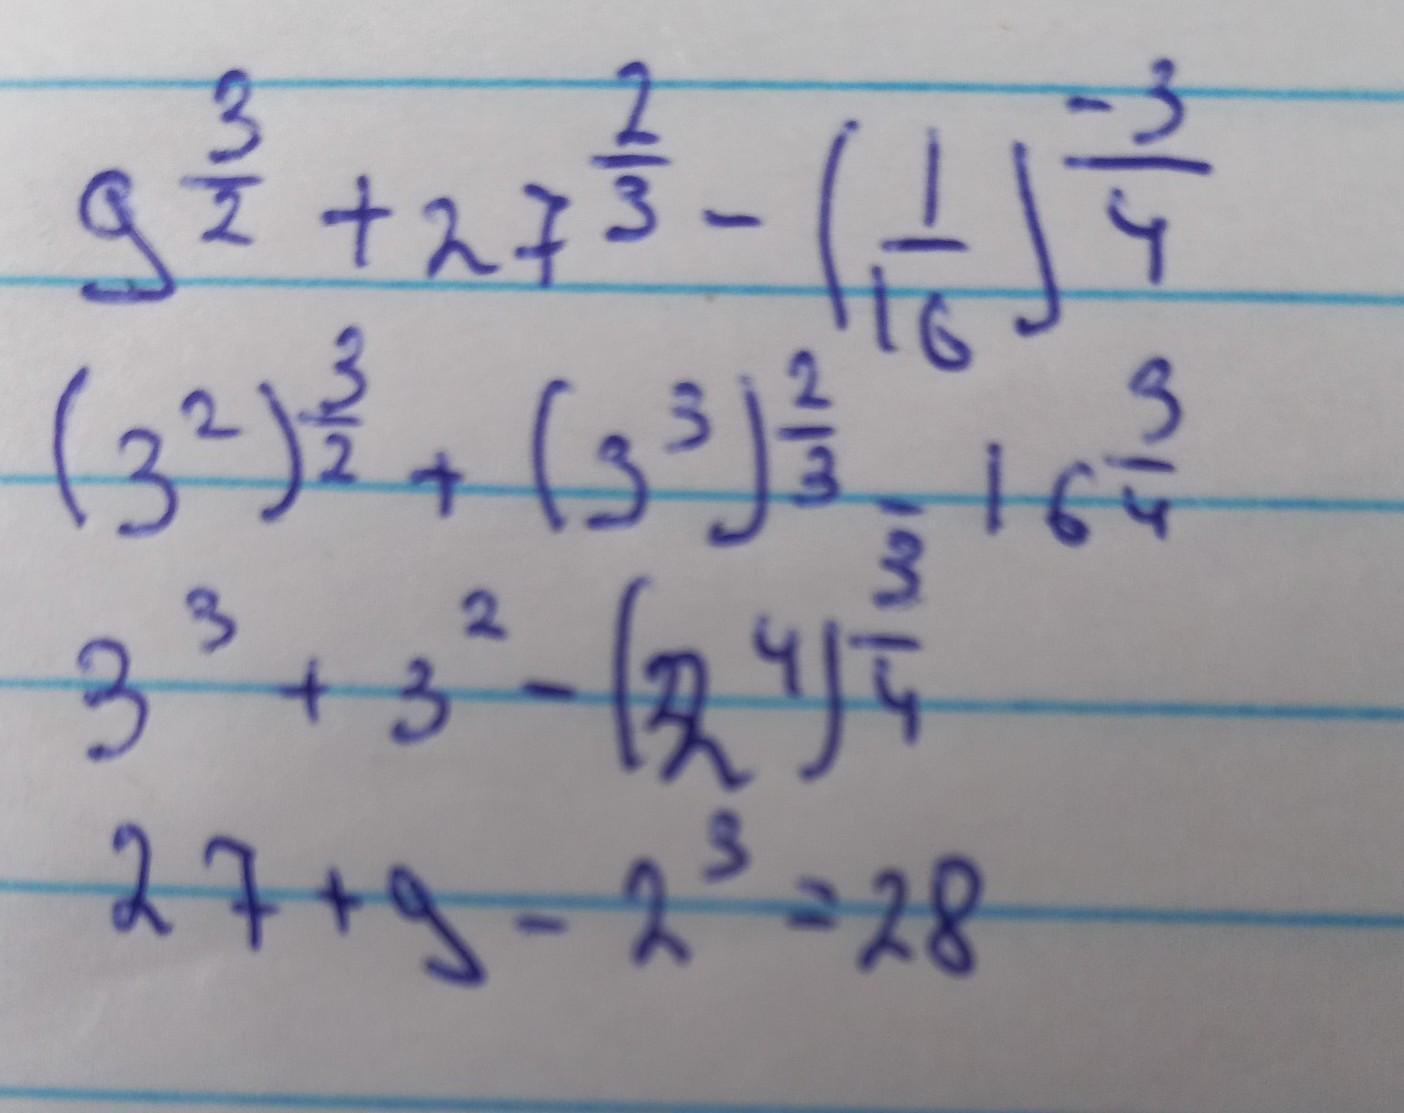 9^{\frac{3}{2}} + 27^{\frac{2}{3}} - (\frac{1}{16})^{\frac{-3}{4}}
(3^2)^{\frac{3}{2}} + (3^3)^{\frac{2}{3}} - 16^{\frac{3}{4}}
3^3 + 3^2 - (2^4)^{\frac{3}{4}}
27 + 9 - 2^3 = 28